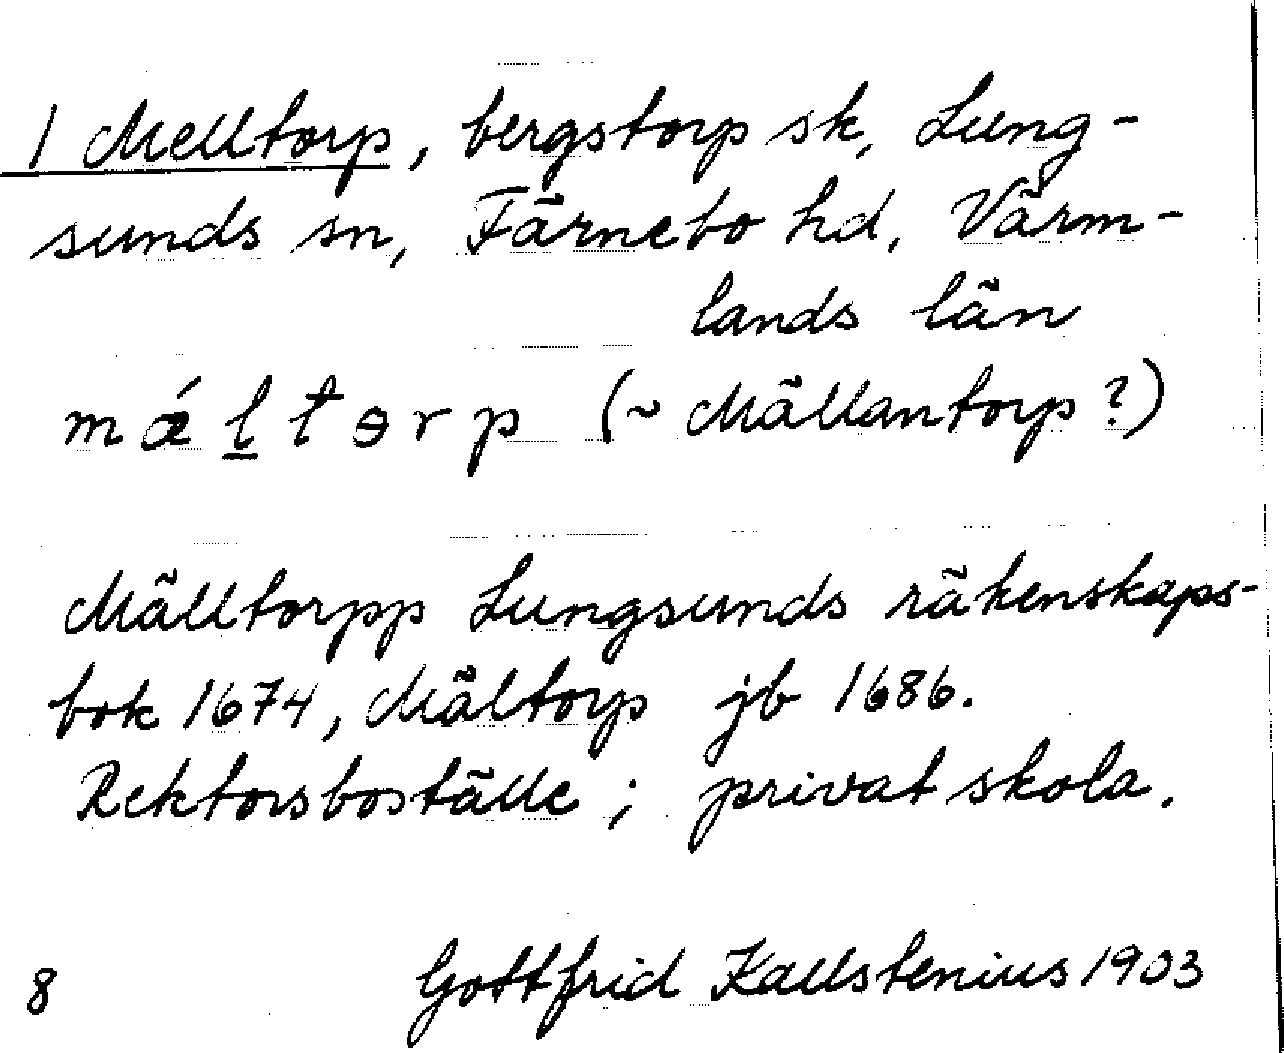 1 Melltorp, bergstorp sk, Lung-
sunds sn, Färnebo hd, Värm-
lands län
mǽl̲tɘrp (~ Mällantorp?)
Mälltorpp Lungsunds räkenskaps-
bok 1674, Mältorp jb 1686.
Rektorsboställe; privat skola.
8 Gottfrid Kallstenius 1903